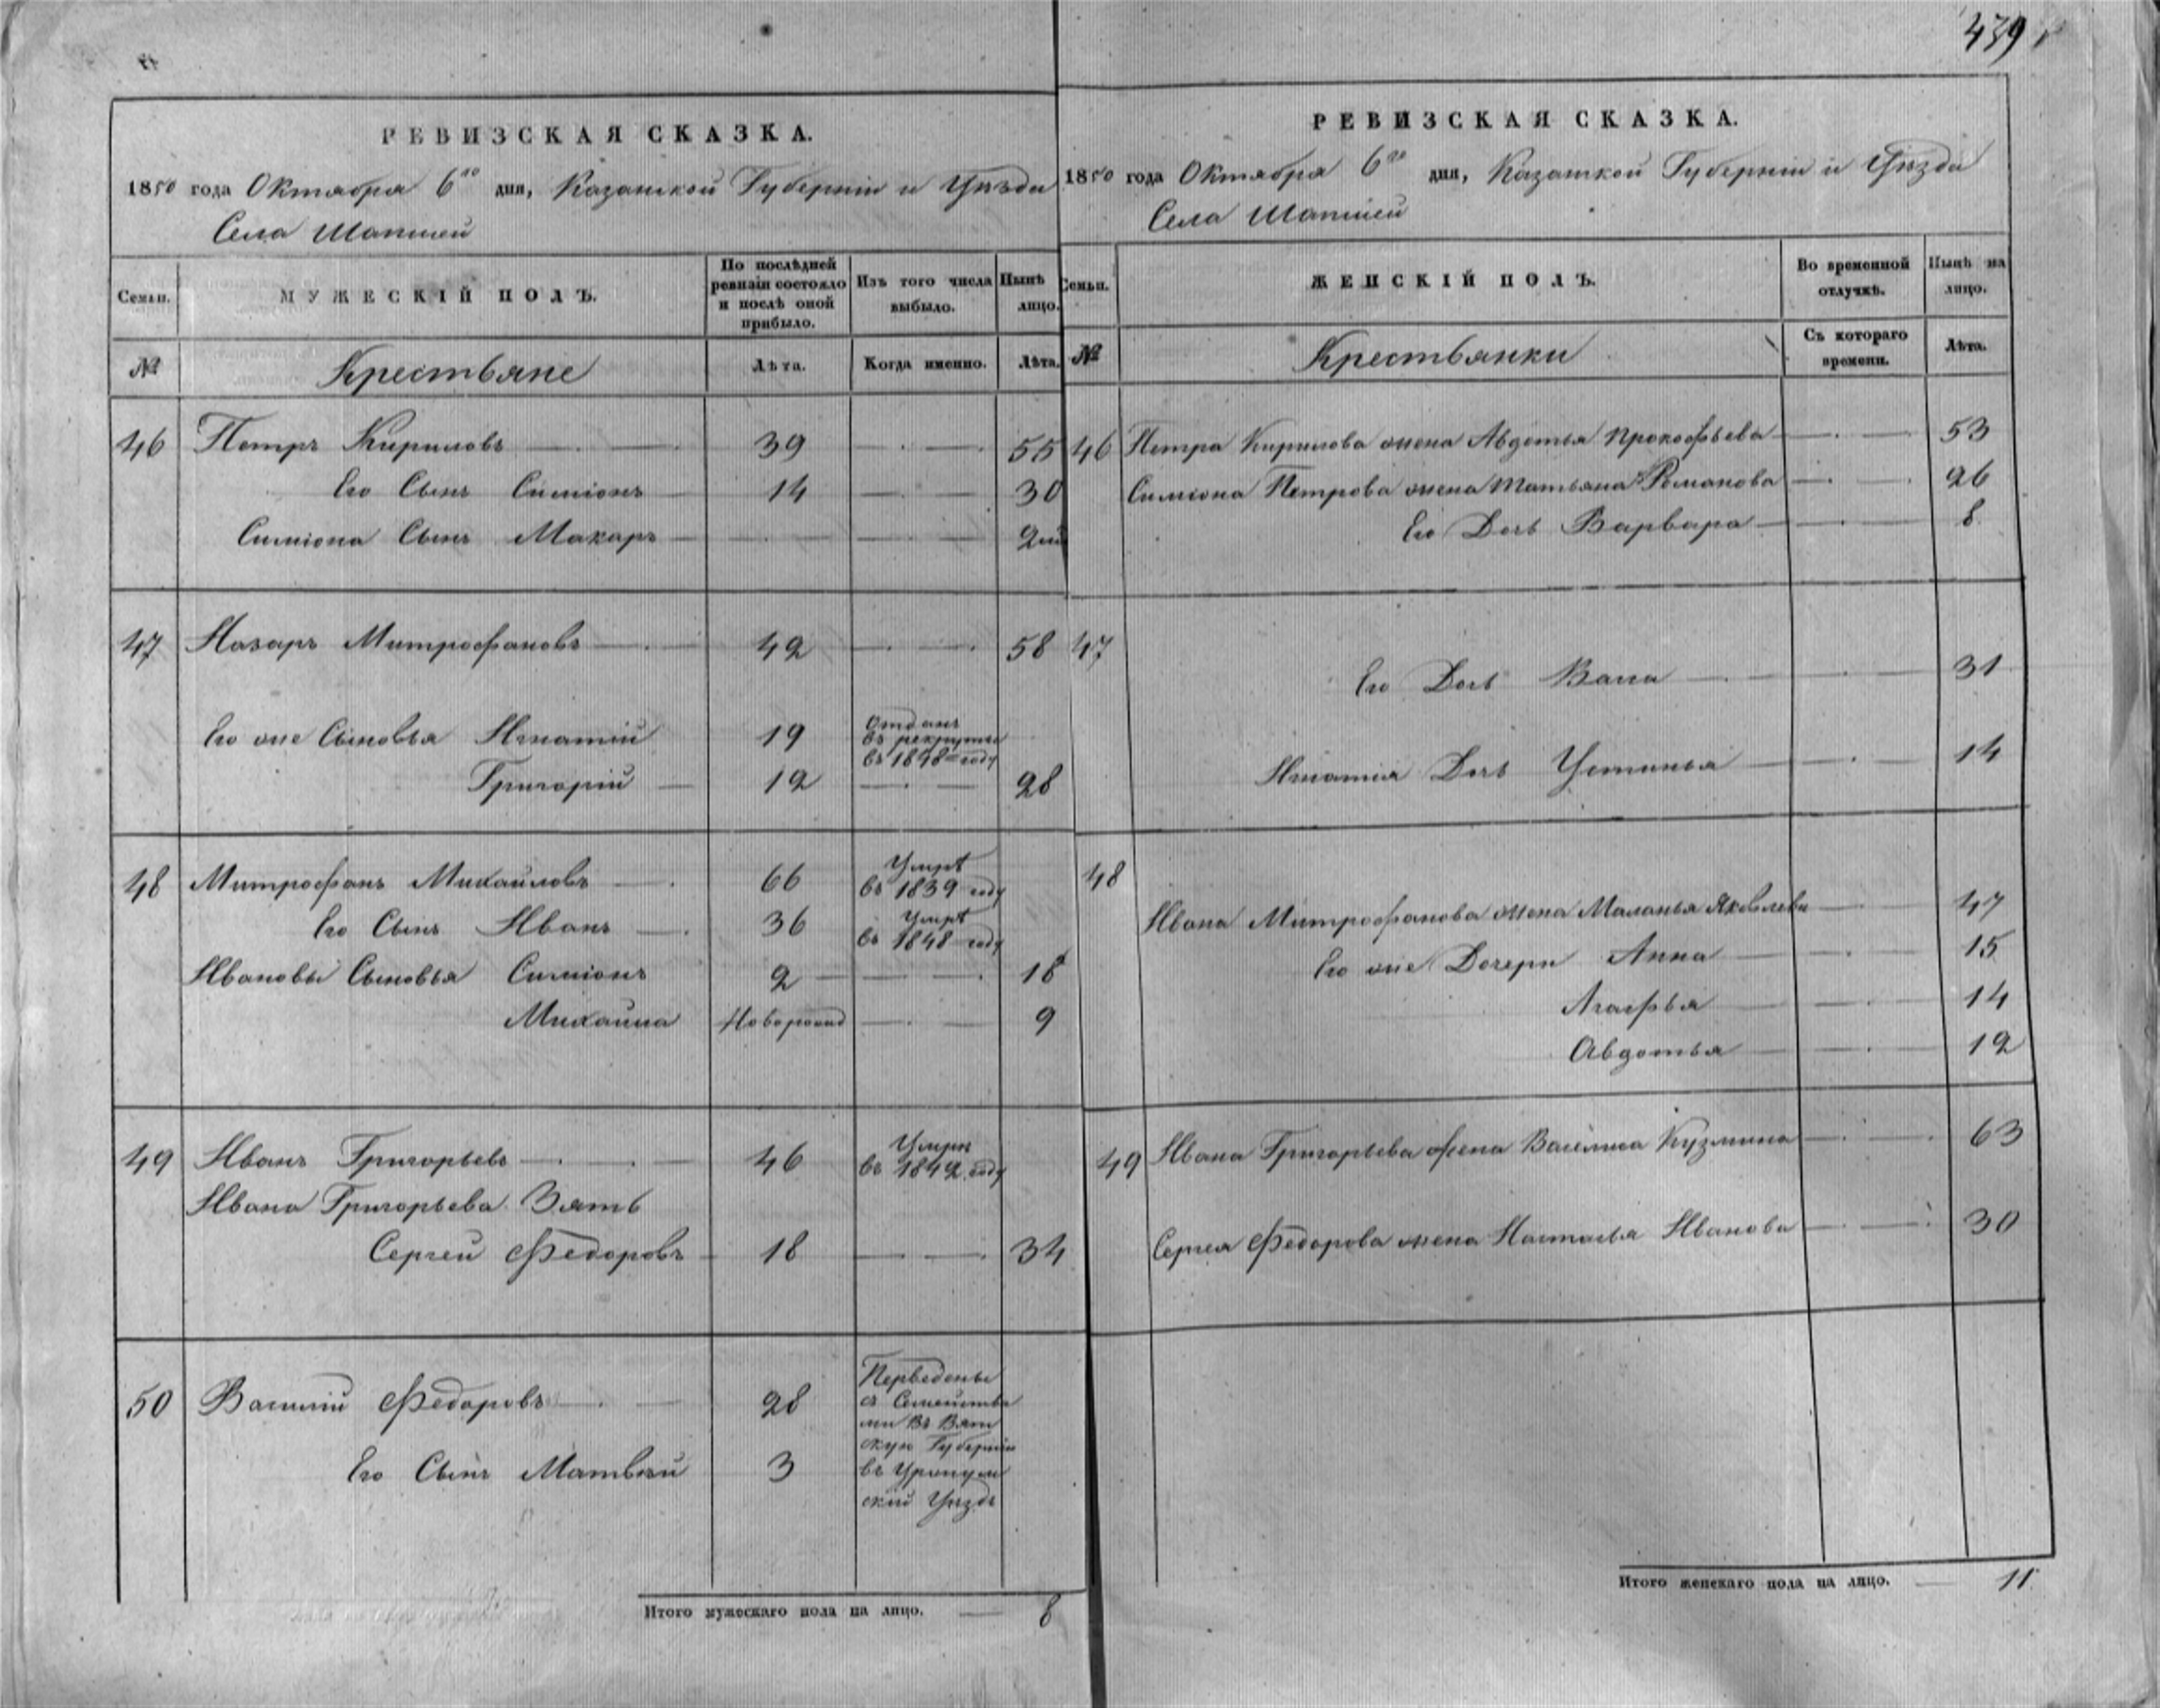 439
РЕВИЗСКАЯ СКАЗКА.
1850 года Октября 6го дня, Казанской Губерніи и Уѣзда
Села Шапшей
Семьи.
МУЖЕСКІЙ ПОЛЪ.
По послѣдней ревизіи состояло и послѣ оной прибыло.
Изъ того числа выбыло.
Нынѣ на лицо.
№
Крестьяне
Лѣта.
Когда именно.
Лѣта.
46 Петръ Кириловъ 39 55
Его Сынъ Симіонъ 14 30
Симіона Сынъ Макаръ 2
47 Назаръ Митрофановъ 42 58
Его же Сыновья Игнатій 19 Отданъ въ рекруты въ 1848 году
Григорій 12 28
48 Митрофанъ Михайловъ 66 Умре въ 1839 году
Его Сынъ Иванъ 36 Умре въ 1848 году
Ивановы Сыновья Симіонъ 2 18
Михайла Новорожд 9
49 Иванъ Григорьевъ 46 Умеръ въ 1842 году
Ивана Григорьева Зять
Сергей Федоровъ 18 34
50 Василій Федоровъ 28 Перведены
съ Семейства
ми Въ Вят
скую Губернію
Его Сынъ Матвѣй 3 въ Уржум
скій Уѣздъ
Итого мужескаго пола на лицо. 8
РЕВИЗСКАЯ СКАЗКА.
1850 года Октября 6го дня, Казанской Губерніи и Уѣзда
Села Шапшей
Семьи.
ЖЕНСКІЙ ПОЛЪ.
Во временной отлучкѣ.
Нынѣ на лицо.
№
Крестьянки
Съ котораго времени.
Лѣта.
46 Петра Кирилова жена Авдотья Прокофьева 53
Симіона Петрова жена Татьяна Романова 26
Его Дочь Варвара 8
47
Его Дочь Васса 31
Игнатія Дочь Устинья 14
48
Ивана Митрофанова жена Маланья Яковлева 47
Его же Дочери Анна 15
Агафья 14
Авдотья 12
49 Ивана Григорьева жена Василиса Кузмина 63
Сергея Федорова жена Настасья Иванова 30
Итого женскаго пола на лицо. 11